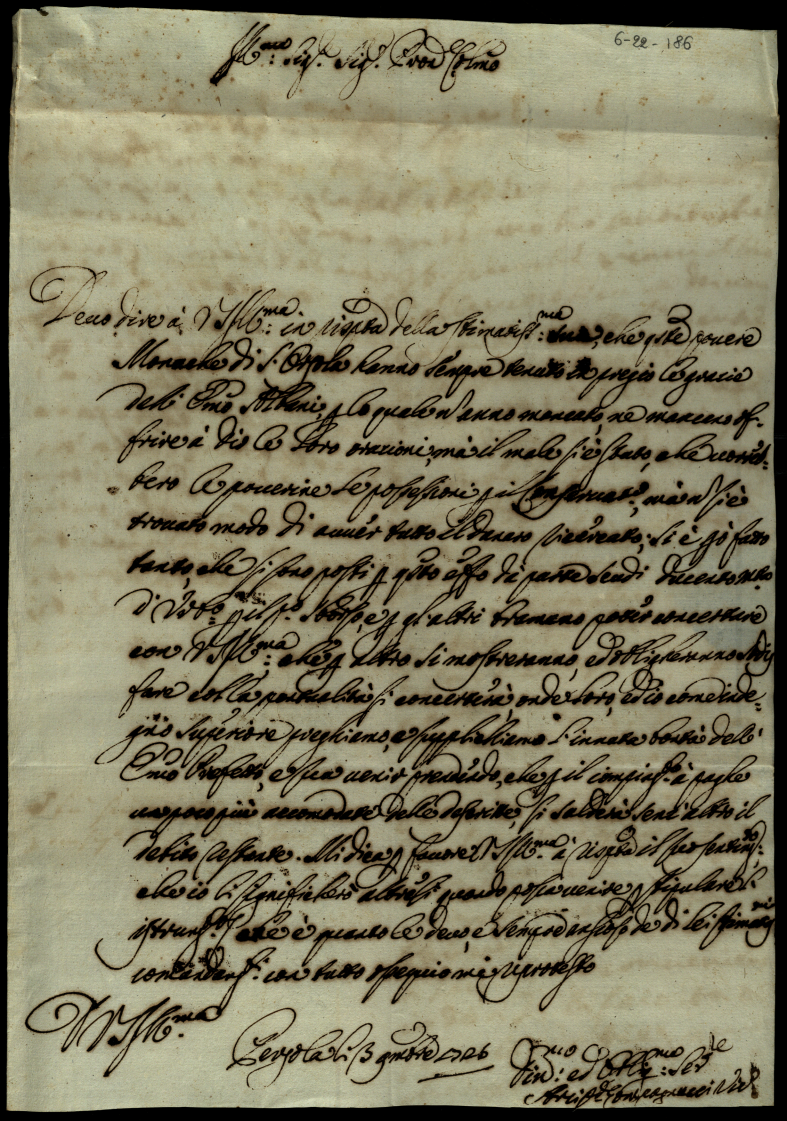 6-22-186
Ill.mo Sig.r Sig.r Pron Colmo
Devo dire à V.S Ill.ma in risposta della stimatiss.ma sua, che q.ste povere
Monache di S. Orsola hanno sempre tenuto in pregio le grazie
dell' Emo Albani, p lo quale ñ anno mancato, ne mancano of-
frire à Dio le loro orazioni, mà il male si è stato, che vorreb-
bero le poverine le possessioni p il Conservat.o, mà ñ si è
trovato modo di avver tutto il danaro ricercato; si è p̀o fatto
tanto, che si sono posti p q.sto effo da parte scudi ducento
di p il p.o sborso, e p gl'altri bramano poter concertare
con V.S Ill.ma, che p altro si mostreranno, ed obligheranno sodis
fare colla pontualità si concerterà onde loro, ed io come inde-
gno Superiore preghiamo, e supplichiamo l'innata bontà dell'
Emo Prefetto, e sua venir, che p il à paghe
un poco più accomodate delle descritte, si salderà senz'altro il
debito restante. Mi dica p favore V.S Ill.ma à risposta il suo sentim.to,
che io li significherò altresì quando possa venire p stipulare l'
istrum.to che è quanto le devo, e sempre ansioso de di lei stimatis.mi
comandam.ti con tutto ossequio mi riprotesto
D V.S Ill.ma
Pergola li 3 9mbre 1726
Dev.mo ed Obblig.mo Ser.re